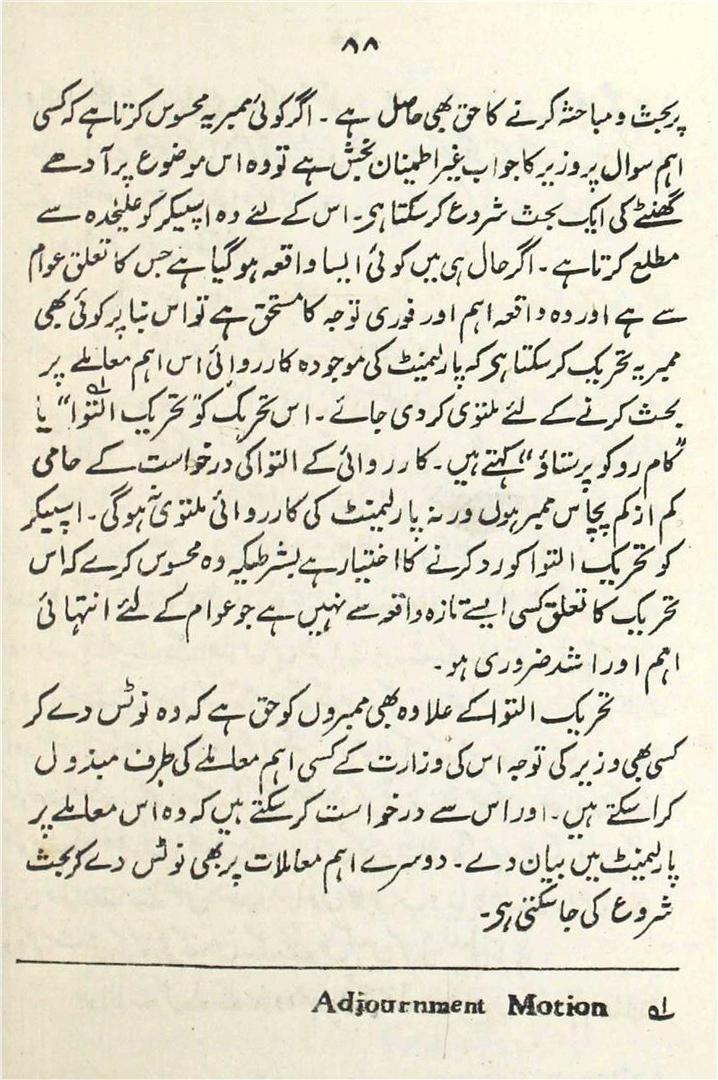 ۸۸
پر بحث و مباحثہ کرنے کا حق بھی حاصل ہے ۔ اگر کوئی ممبر یہ محسوس کرتا ہے کہ کسی
اہم سوال پر وزیر کا جواب غیر اطمینان بخش ہے تو وہ اس موضوع پر آدھے
گھنٹے کی ایک بحث شروع کرسکتا ہی۔ اس کے لئے وہ اسپیکر کو علیٰحدہ سے
مطلع کرتا ہے ۔ اگر حال ہی میں کوئی ایسا واقعہ ہو گیا ہے جس کا تعلق عوام
سے ہے اور وہ واقعہ اہم اور فوری توجہ کا مستحق ہے تو اس بنا پر کوئی بھی
ممبر یہ تحریک کرسکتا ہی کہ پارلیمنٹ کی موجودہ کارروائی اس اہم معاملے پر
بحث کرنے کے لئے ملتوی کر دی جائے ۔ اس تحریک کو "تحریک التوا"لہ یا
"کام روکو پرستاؤ" کہتے ہیں ۔ کارروائی کے التوا کی درخواست کے حامی
کم از کم پچاس ممبر ہوں ورنہ پارلیمنٹ کی کارروائی ملتوی نہ ہوگی ۔ اسپیکر
کو تحریک التوا کو رد کرنے کا اختیار ہے بشرطیکہ وہ محسوس کرے کہ اس
تحریک کا تعلق کسی ایسے تازہ واقعہ سے نہیں ہے جو عوام کے لئے انتہائی
اہم اور اشد ضروری ہو ۔
تحریک التوا کے علاوہ بھی ممبروں کو حق ہے کہ وہ نوٹس دے کر
کسی بھی وزیر کی توجہ اس کی وزارت کے کسی اہم معاملے کی طرف مبذول
کراسکتے ہیں ۔ اور اس سے درخواست کرسکتے ہیں کہ وہ اس معاملے پر
پارلیمنٹ میں بیان دے ۔ دوسرے اہم معاملات پر بھی نوٹس دے کر بحث
شروع کی جاسکتی ہی۔
لہ Adjournment Motion